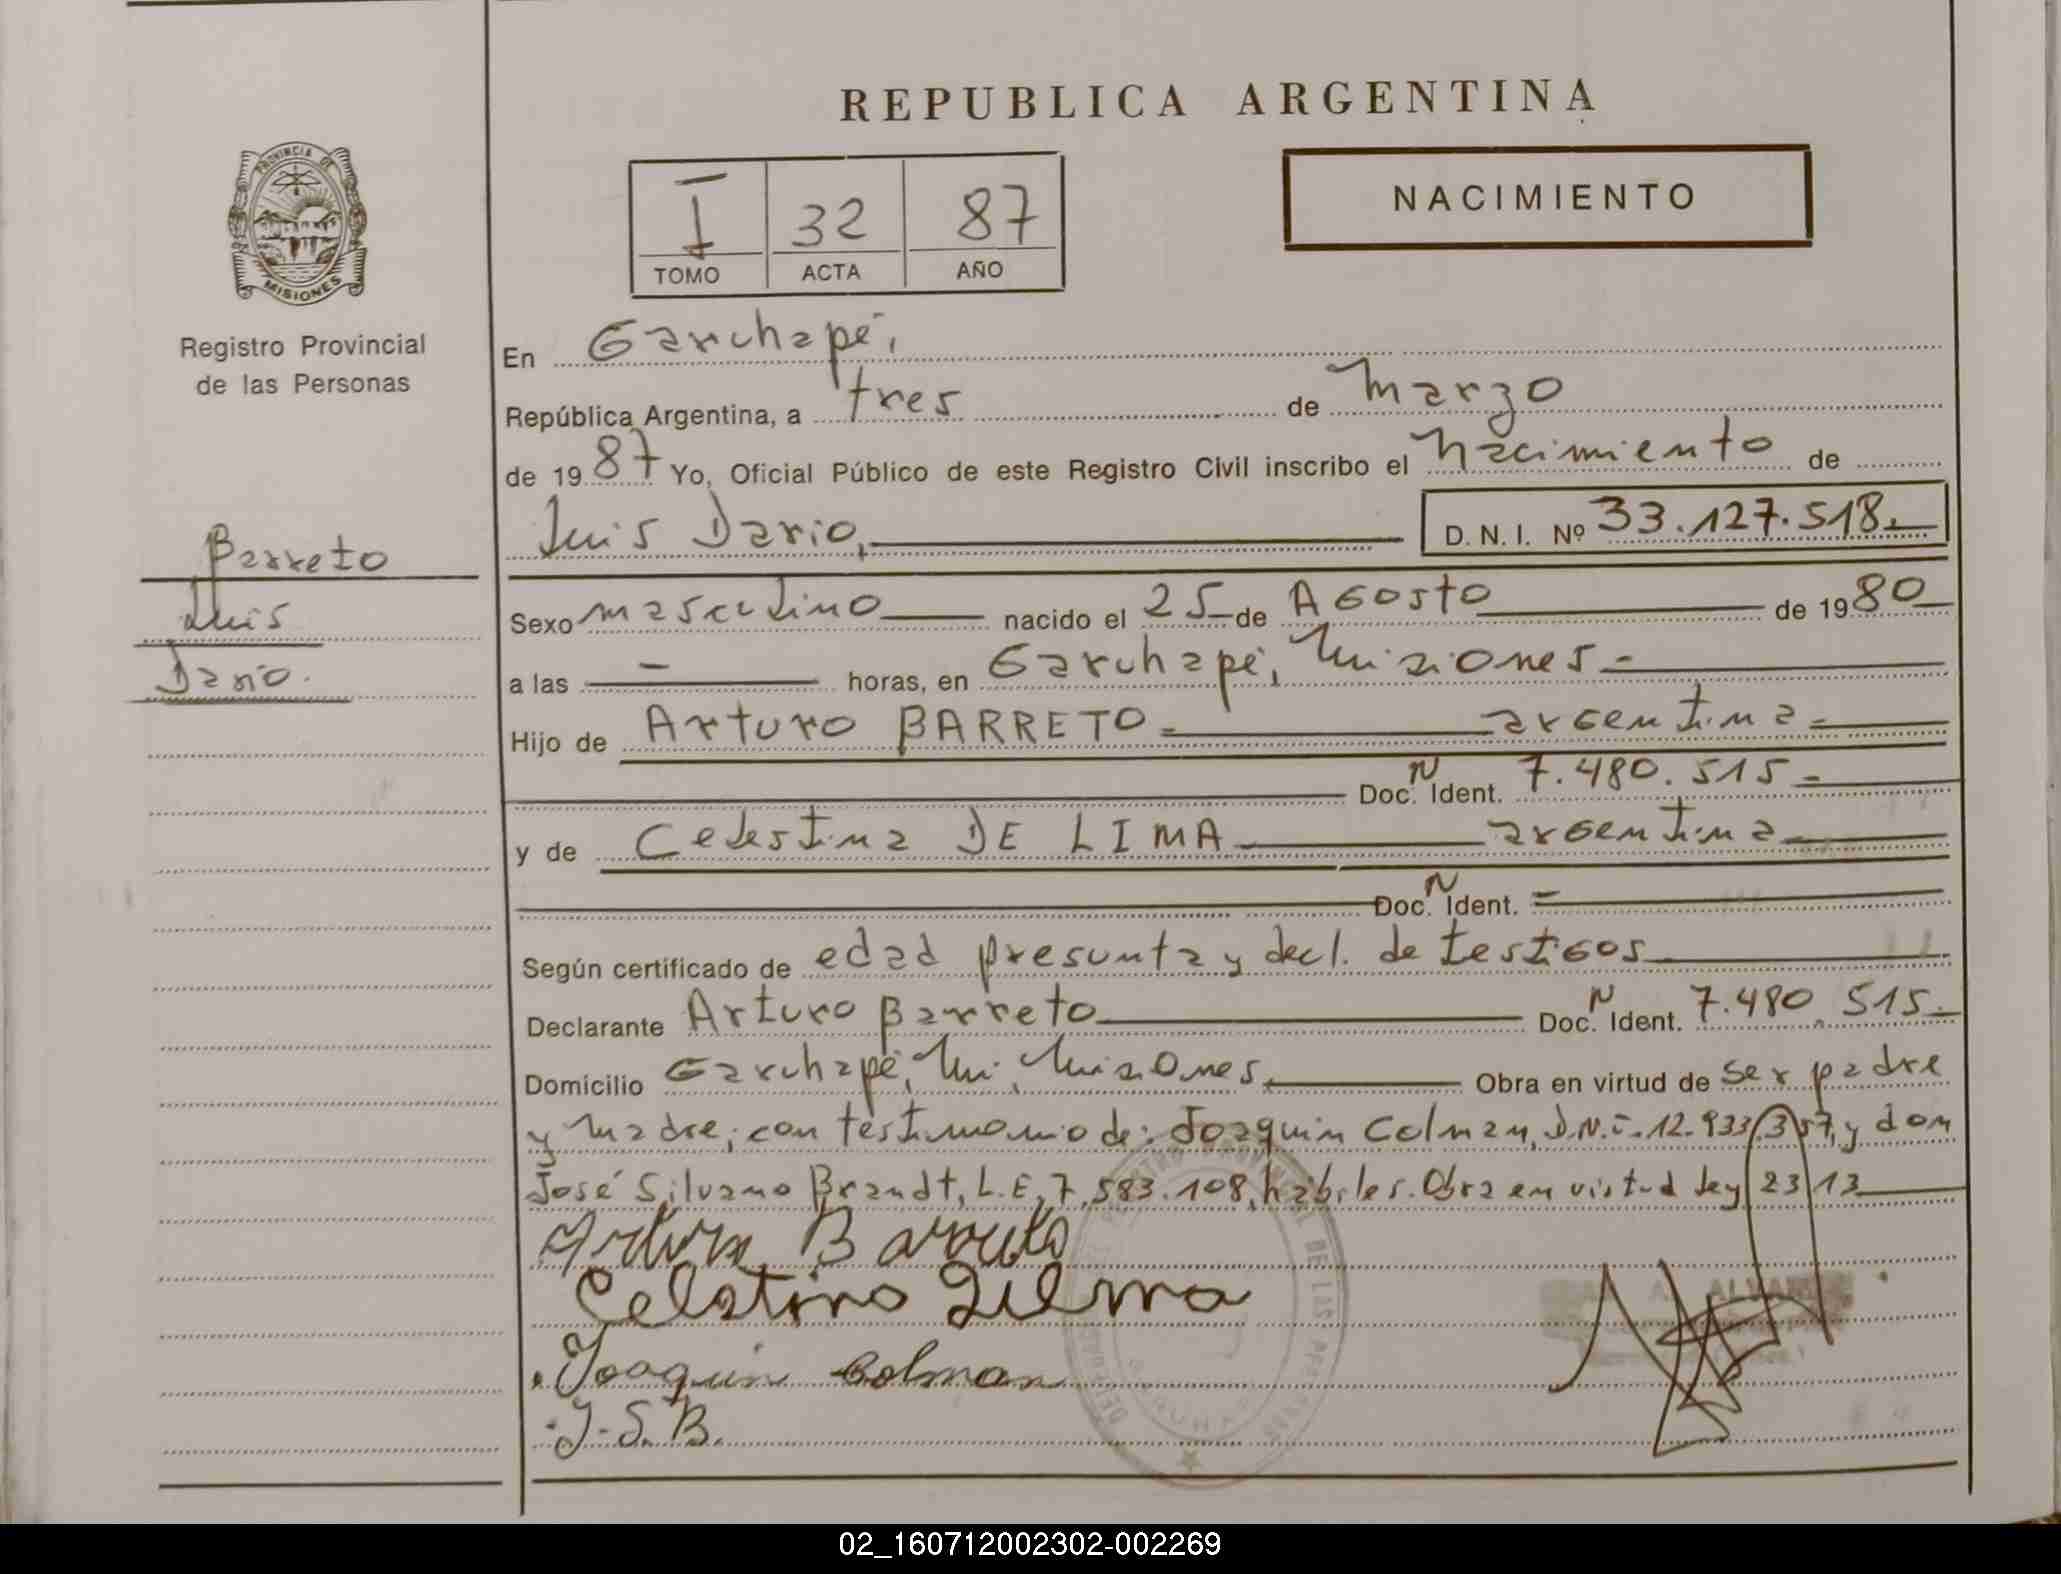 REPUBLICA ARGENTINA
PROVINCIA DE
MISIONES
Registro Provincial
de las Personas
I 32 87
TOMO ACTA AÑO
NACIMIENTO
En Garuhapé,
República Argentina, a tres de Marzo
de 1987 Yo, Oficial Público de este Registro Civil inscribo el Nacimiento de
Luis Dario, D. N. I. Nº 33.127.518.
Barreto
Luis
Dario.
Sexo masculino nacido el 25 de Agosto de 1980
a las - horas, en Garuhapé, Misiones -
Hijo de Arturo BARRETO argentina
Doc. N Ident. 7.480.515
y de Celestina DE LIMA argentina
Doc. N Ident. =
Según certificado de edad presunta y decl. de testigos
Declarante Arturo Barreto Doc. N Ident. 7.480.515
Domicilio Garuhapé, Mi, Misiones Obra en virtud de ser padre
y madre, con testimonio de: Joaquin Colman, D.N.I. 12.933.357, y don
José Silvano Brandt, L.E. 7.583.108, hábiles. Obra en virtud ley 2313
Arturo Barreto
Joaquin Colman
J.S.B.
02_160712002302-002269